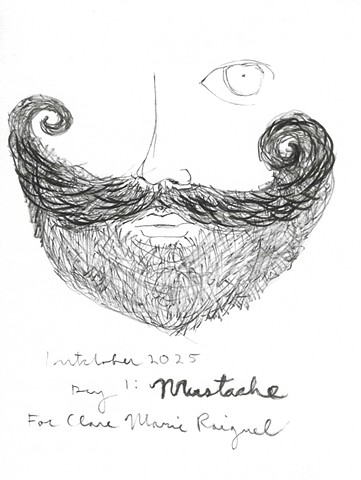 Inktober 2025
Day 1: Mustache
For Clare Marie